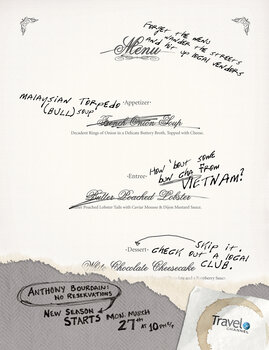 FORGET THE MENU
WANDER THE STREETS
AND HIT UP LOCAL VENDORS
Menu
MALAYSIAN TORPEDO
(BULL) SOUP
·Appetizer·
French Onion Soup
Decadent Rings of Onion in a Delicate Buttery Broth, Topped with Cheese.
·Entree·
HOW 'BOUT SOME
BUN CHA FROM
VIETNAM?
Butter Poached Lobster
Poached Lobster Tails with Caviar Mousse & Dijon Mustard Sauce.
·Dessert·
SKIP IT.
CHECK OUT A LOCAL
CLUB.
White Chocolate Cheesecake
and a Raspberry Sauce
ANTHONY BOURDAIN:
NO RESERVATIONS
NEW SEASON
STARTS MON. MARCH
27TH AT 10PM
Travel
CHANNEL